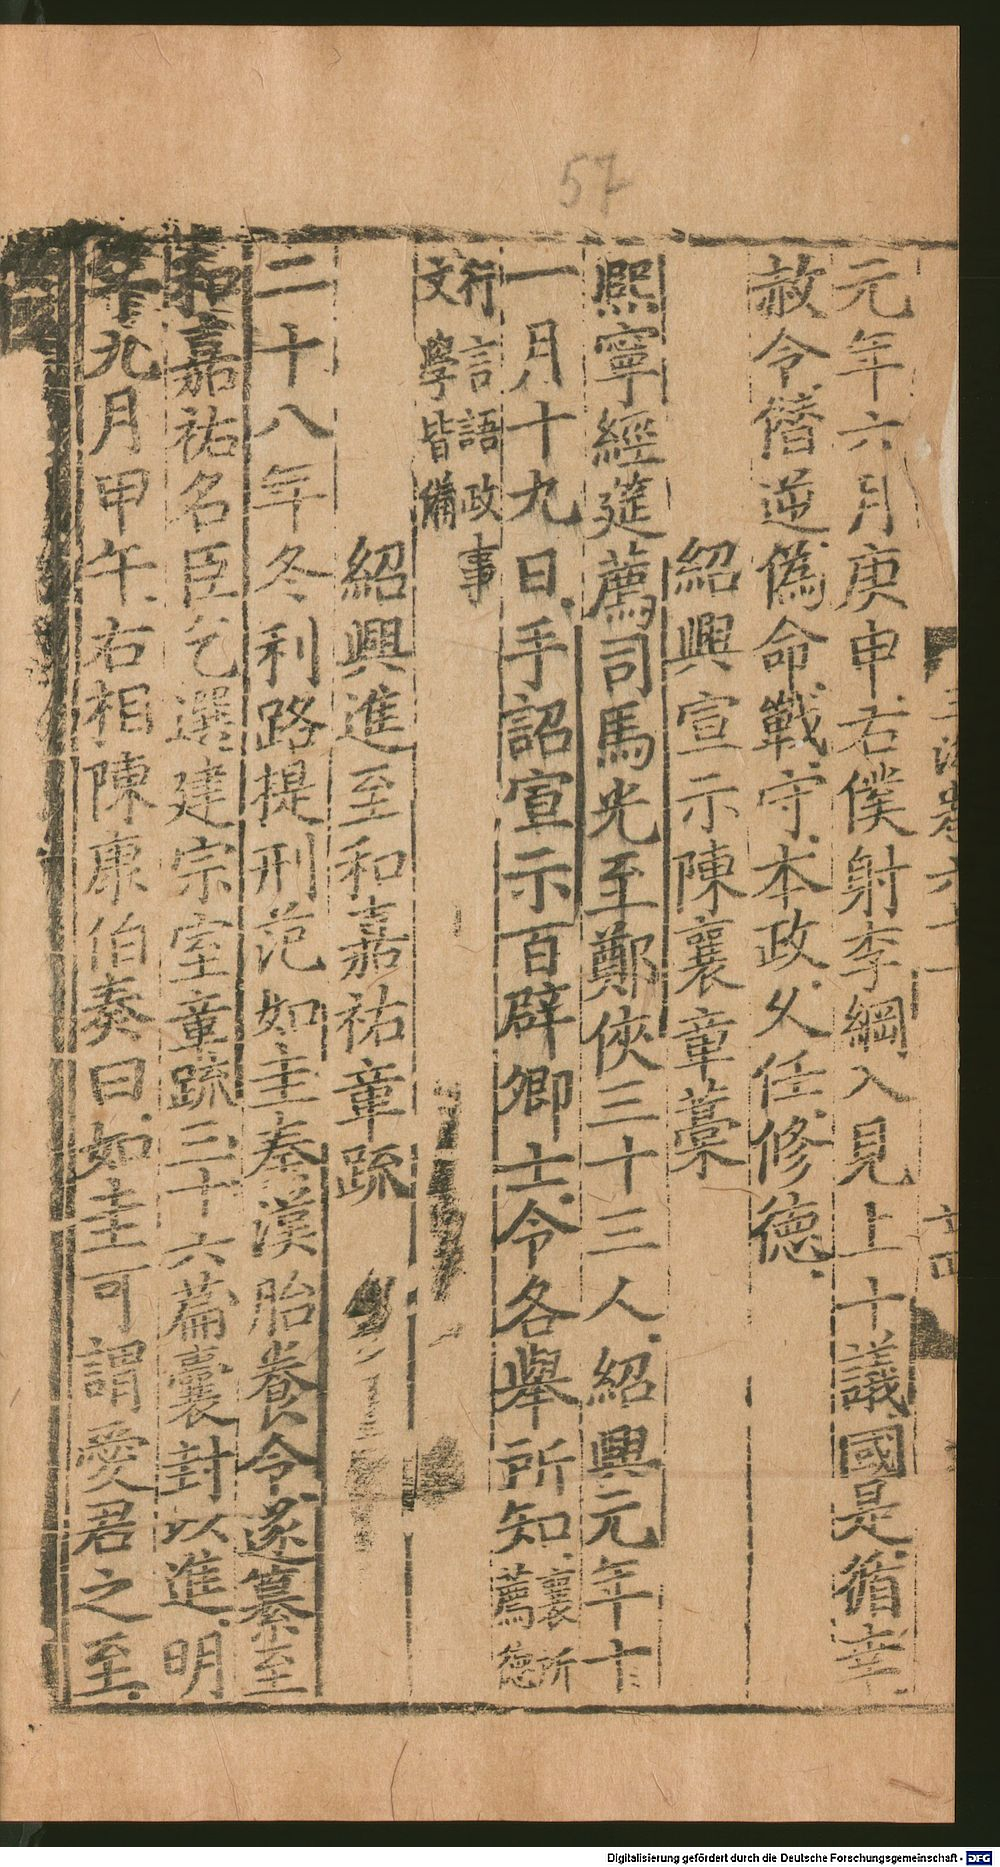 57
元年六月庚申右僕射李綱入見上十議國是循幸
赦令僣逆偽命戰守本政久任修德
紹興宣示陳襄章藁
熙寧經筵薦司馬光至鄭俠三十三人紹興元年十
一月十九日手詔宣示百辟卿士令各舉所知襄所薦德
行言語政事文學皆備
紹興進至和嘉祐章疏
二十八年冬利路提刑范如圭奏漢胎養令遂纂至
和嘉祐名臣乞選建宗室章疏三十六篇囊封以進明
年九月甲午右相陳康伯奏曰如圭可謂愛君之至
Digitalisierung gefördert durch die Deutsche Forschungsgemeinschaft - DFG